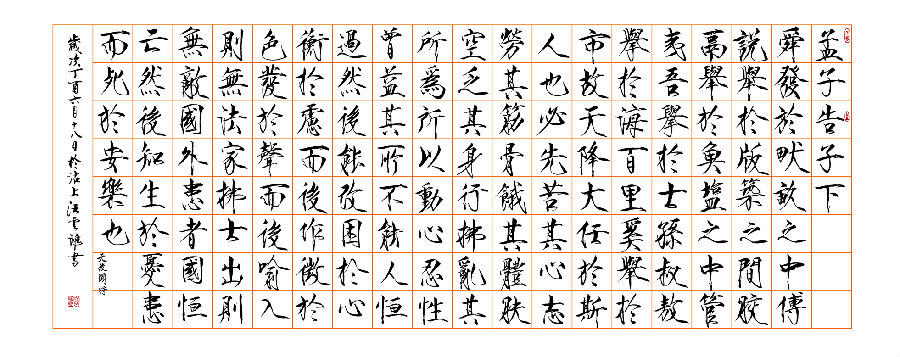 孟子告子下
舜發於畎畝之中傅
說舉於版築之間膠
鬲舉於魚塩之中管
夷吾舉於士孫叔敖
舉於海百里奚舉於
市故天降大任於斯
人也必先苦其心志
勞其筋骨餓其體膚
空乏其身行拂亂其
所爲所以動心忍性
曾益其所不能人恒
過然後能改困於心
衡於慮而後作徵於
色發於聲而後喻入
則無法家拂士出則
無敵國外患者國恒
亡然後知生於憂患
而死於安樂也
歲次丁酉六月十八日於沽上汪雲書